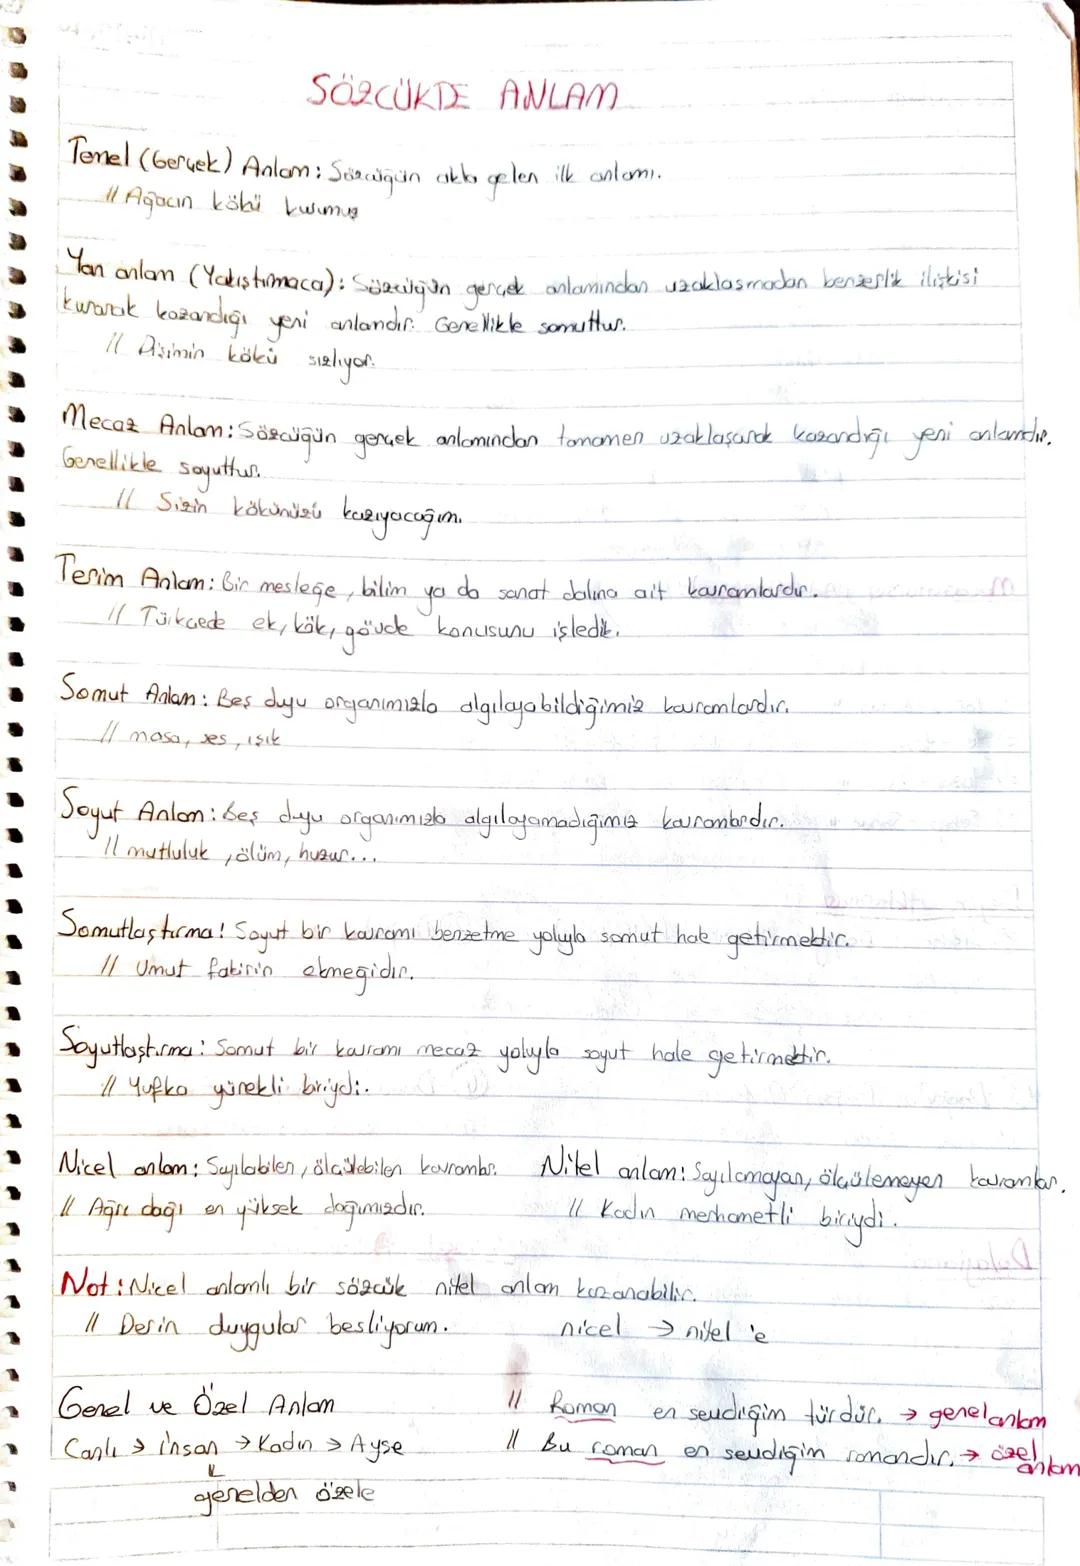 SÖZCÜKDE ANLAM
Temel (Gerçek) Anlam: Sözcüğün akla gelen ilk anlamı.
// Ağacın kökü kurumuş
Yan anlam (Yakıştırmaca): Sözcüğün gerçek anlamından uzaklaşmadan benzerlik ilişkisi
kurarak kazandığı yeni anlamdır. Genellikle somuttur.
// Dişimin kökü sızlıyor.
Mecaz Anlam: Sözcüğün gerçek anlamından tamamen uzaklaşarak kazandığı yeni anlamdır.
Genellikle soyuttur.
// Sizin kökünüzü kazıyacağım.
Terim Anlam: Bir mesleğe, bilim ya da sanat dalına ait kavramlardır.
// Türkçede ek, kök, gövde konusunu işledik.
Somut Anlam: Beş duyu organımızla algılayabildiğimiz kavramlardır.
// masa, ses, ışık
Soyut Anlam: Beş duyu organımızla algılayamadığımız kavramlardır.
// mutluluk, ölüm, huzur...
Somutlaştırma! Soyut bir kavramı benzetme yoluyla somut hale getirmektir.
// Umut fakirin ekmeğidir.
Soyutlaştırma: Somut bir kavramı mecaz yoluyla soyut hale getirmektir.
// Yufka yürekli biriydi.
Nicel anlam: Sayılabilen, ölçülebilen kavramlar.
// Ağrı dağı en yüksek dağımızdır.
Nitel anlam: Sayılamayan, ölçülemeyen kavramlar.
// Kadın merhametli biriydi.
Not: Nicel anlamlı bir sözcük nitel anlam kazanabilir.
// Derin duygular besliyorum. nicel → nitel 'e
Genel ve Özel Anlam
Canlı → insan → Kadın → Ayşe
genelden özele
// Roman en sevdiğim türdür. → genel anlam
// Bu roman en sevdiğim romandır. → özel anlam